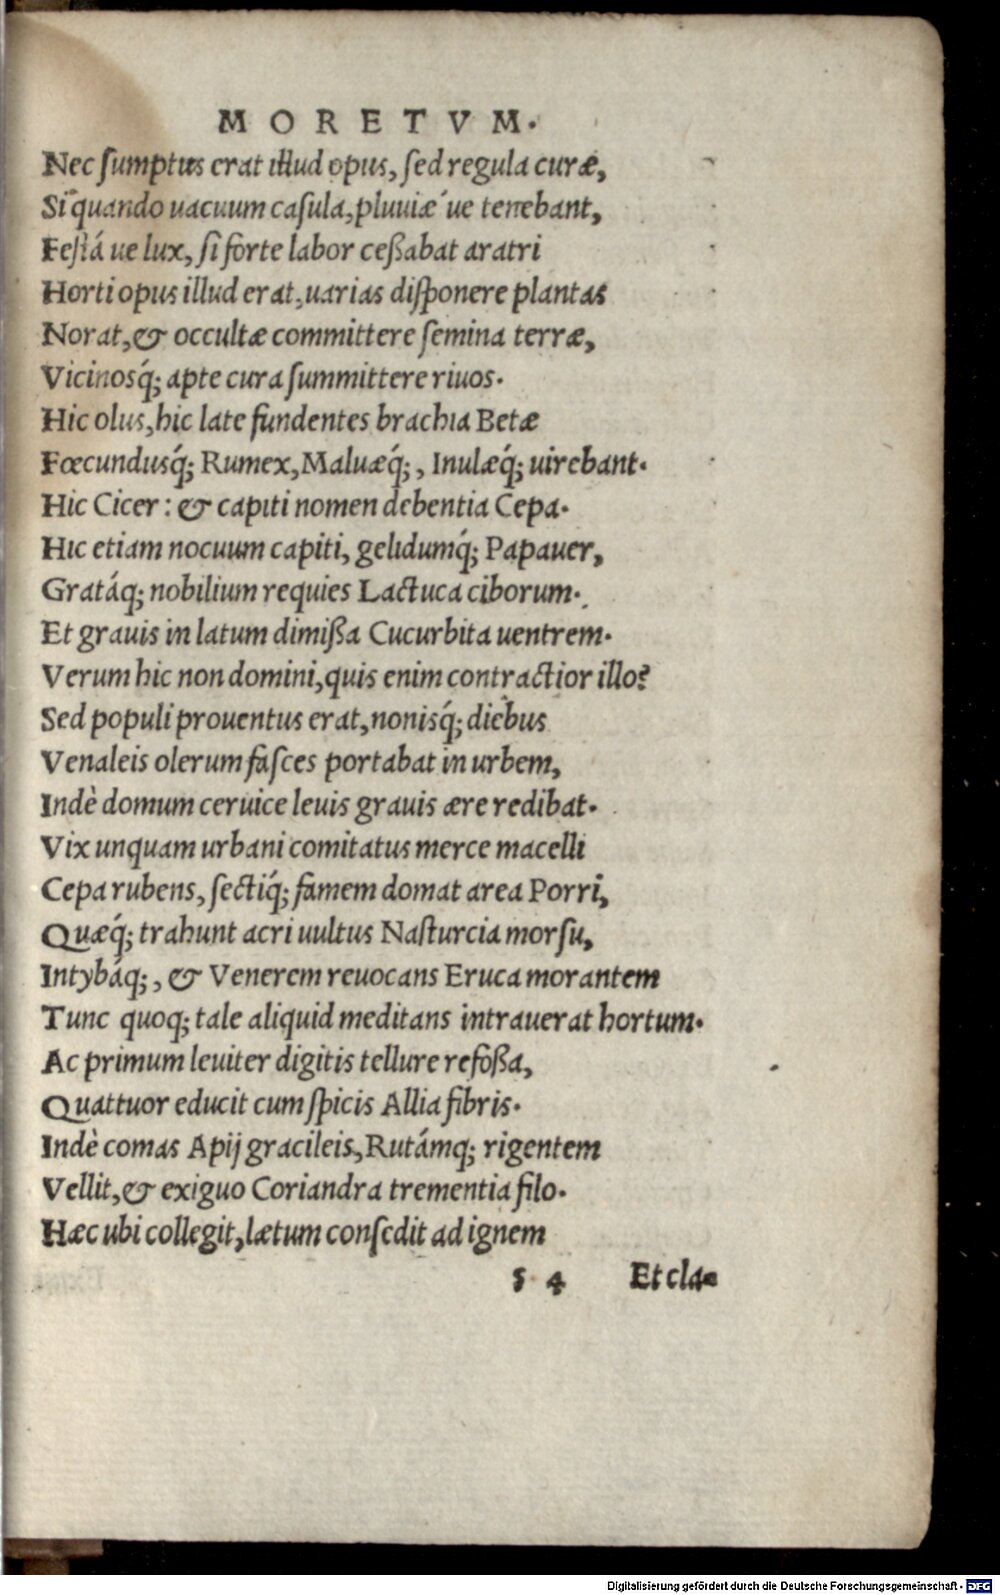 MORETVM.
Nec ſumptus erat illud opus, ſed regula curæ,
Si quando uacuum caſula, pluuiæ´ ue tenebant,
Feſtá ue lux, ſi forte labor ceßabat aratri
Horti opus illud erat, uarias diſponere plantas
Norat, & occultæ committere ſemina terræ,
Vicinosq́; apte cura ſummittere riuos.
Hic olus, hic late fundentes brachia Betæ
Fœcundusq́; Rumex, Maluæq́;, Inulæq́; uirebant.
Hic Cicer: & capiti nomen debentia Cepa.
Hic etiam nocuum capiti, gelidumq́; Papauer,
Gratáq; nobilium requies Lactuca ciborum.
Et grauis in latum dimißa Cucurbita uentrem.
Verum hic non domini, quis enim contractior illo?
Sed populi prouentus erat, nonisq́; diebus
Venaleis olerum faſces portabat in urbem,
Indè domum ceruice leuis grauis ære redibat.
Vix unquam urbani comitatus merce macelli
Cepa rubens, ſectiq́; famem domat area Porri,
Quæq́; trahunt acri uultus Naſturcia morſu,
Intybáq;, & Venerem reuocans Eruca morantem
Tunc quoq; tale aliquid meditans intrauerat hortum.
Ac primum leuiter digitis tellure refoßa,
Quattuor educit cum ſpicis Allia fibris.
Indè comas Apij gracileis, Rutámq; rigentem
Vellit, & exiguo Coriandra trementia filo.
Hæc ubi collegit, lætum conſedit ad ignem
s 4 Et cla-
Digitalisierung gefördert durch die Deutsche Forschungsgemeinschaft - DFG